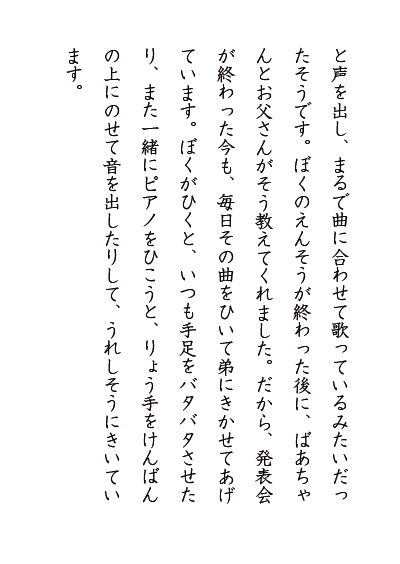 と声を出し、まるで曲に合わせて歌っているみたいだっ
たそうです。ぼくのえんそうが終わった後に、ばあちゃ
んとお父さんがそう教えてくれました。だから、発表会
が終わった今も、毎日その曲をひいて弟にきかせてあげ
ています。ぼくがひくと、いつも手足をバタバタさせた
り、また一緒にピアノをひこうと、りょう手をけんばん
の上にのせて音を出したりして、うれしそうにきいてい
ます。